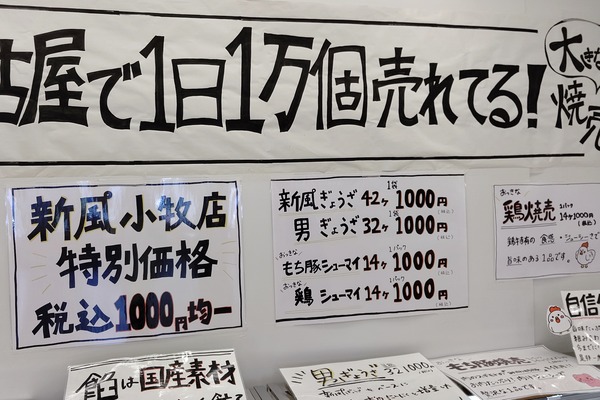 古屋で1日1万個売れてる!
大きな
焼売
新風小牧店
特別価格
税込1000円均一
新風ぎょうざ 42ヶ 1袋 1000円(税込)
男ぎょうざ 32ヶ 1袋 1000円(税込)
おっきな
もち豚シューマイ 14ヶ 1パック 1000円(税込)
おっきな
鶏シューマイ 14ヶ 1パック 1000円(税込)
おっきな
鶏焼売 1パック 14ヶ1000円(税込)
鶏特有の食感・ジューシーさで
旨味のある1品です。
餡は国産素材
男ぎょうざ
もち豚焼売
自信